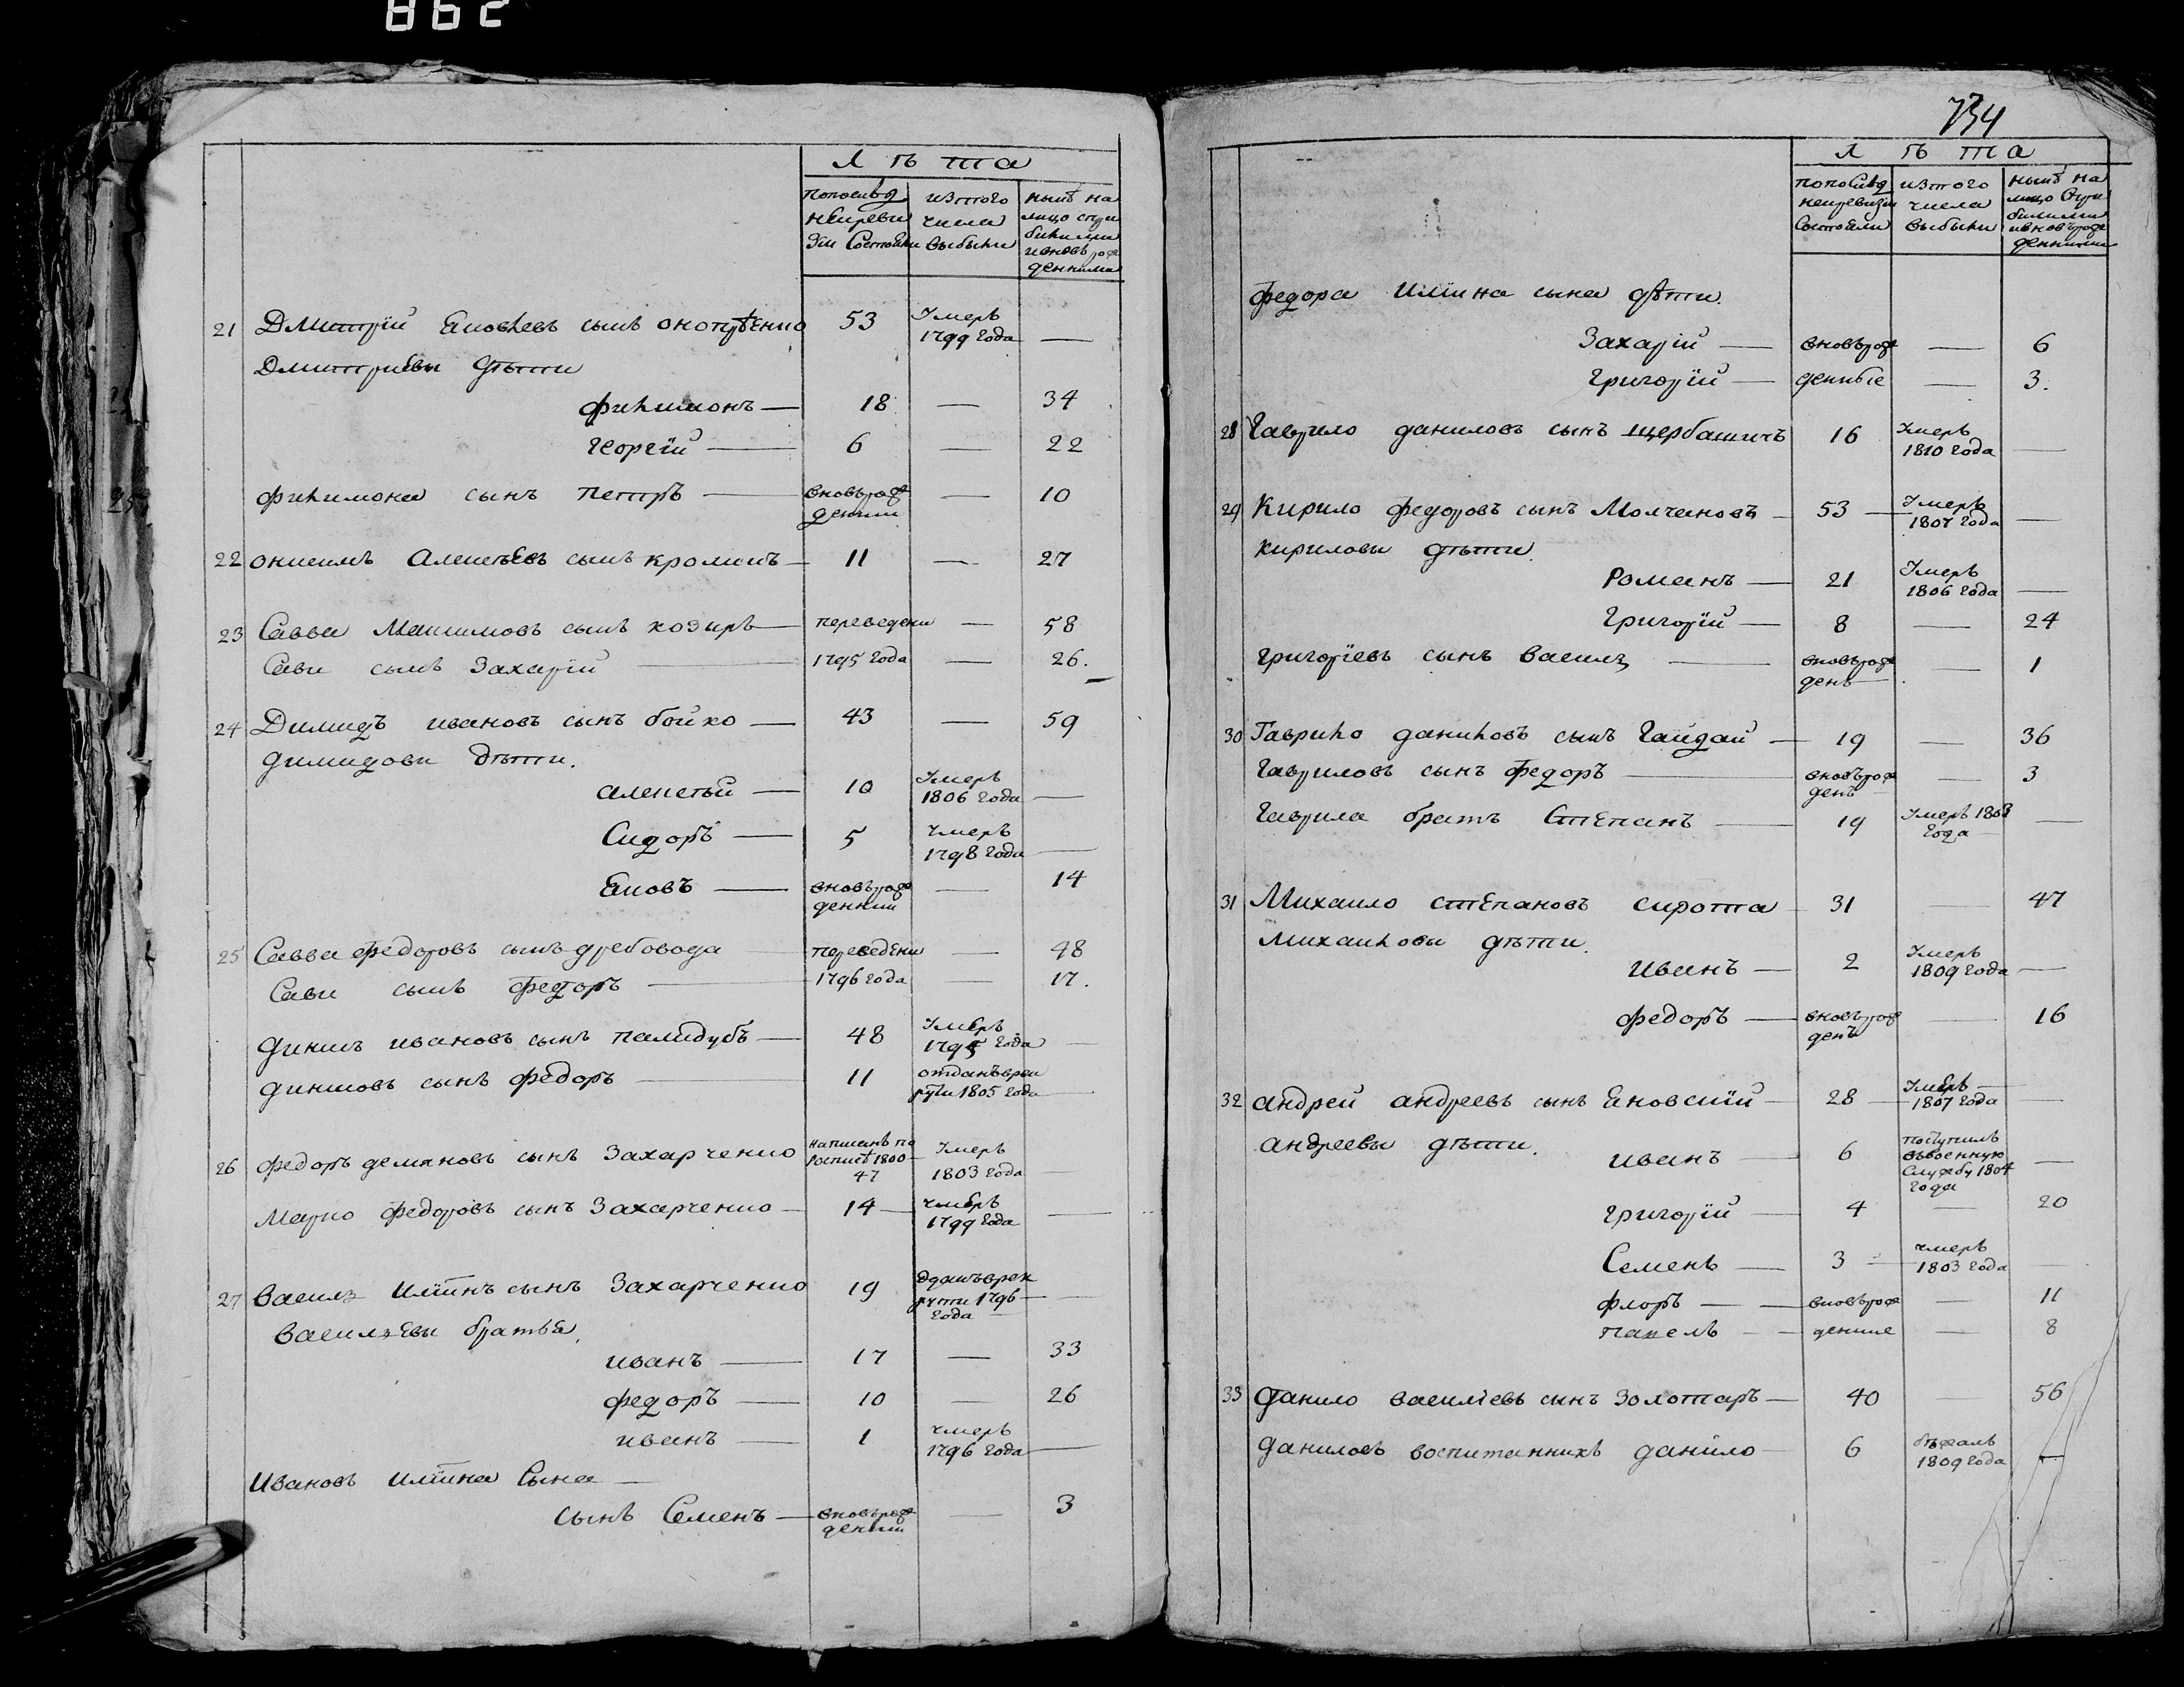 862
лѣта
попослѣд изтого нынѣ на
нѣйреви числа лицо спри
зіи Состояли выбыли былыми
ивновь рож
денними
21 Дмитрій Яковлевъ сынъ 53 Умеръ 1799 года —
Дмитріевы дѣти
филимонъ — 18 — 34
Георгій — 6 — 22
филимона сынъ петръ — вновьрож денни — 10
22 онисимъ Алексѣевъ сынъ кромикъ — 11 — 27
23 Савва Максимовъ сынъ козырь — переведени — 58
Савы сынъ Захарій — 1795 года — 26.
24 Димидъ ивановъ сынъ бойко — 43 — 59
димидовы дѣти.
алексѣй — 10 Умеръ 1806 года —
Сидоръ — 5 умеръ 1798 года —
Яковъ — вновьрож денни — 14
25 Савва федоровъ сынъ дребовода — переведены — 48
Савы сынъ федоръ — 1796 года — 17.
динисъ ивановъ сынъ палидубъ — 48 Умеръ 1795 года —
динисовъ сынъ федоръ — 11 отданъврек руты 1805 года —
26 федоръ демяновъ сынъ Захарченко написанъ по росписѣ 1800 47 Умеръ 1803 года —
Марко федоровъ сынъ Захарченко — 14 — умеръ 1799 года —
27 василь Иліинъ сынъ Захарченко 19 Одданъврек руты 1796 года —
василевы братья,
иванъ — 17 — 33
федоръ — 10 — 26
иванъ — 1 умеръ 1796 года —
Ивановъ иліина сына —
сынъ Семенъ — вновьрож денни — 3
734
лѣта
попослѣд изтого нынѣ на
нейревизіи числа лицо спри
Состояли выбыли былыми
ивновьрож
денними
федора Иліина сына дѣти.
Захарій — вновьрож — 6
Григорій — денные — 3.
28 Гаврило даниловъ сынъ щербашичъ 16 Умеръ 1810 года —
29 Кирило федоровъ сынъ Молчановъ — 53 — Умеръ 1807 года —
кириловы дѣти.
Романъ — 21 Умеръ 1806 года —
Григорій — 8 — 24
григоріевъ сынъ василь — вновьрож денъ — 1
30 Гаврило даниловъ сынъ Гайдай — 19 — 36
Гавриловъ сынъ федоръ — вновьрож денъ — 3
Гаврила братъ Степанъ — 19 Умеръ 1803 года —
31 Михаило степановъ сирота — 31 — 47
Михаиловы дѣти.
Иванъ — 2 Умеръ 1809 года —
федоръ — вновьрож денъ — 16
32 андрей андреевъ сынъ Яновскій — 28 — Умеръ 1807 года —
андреевы дѣти.
иванъ — 6 поступилъ въвоенную Службу 1804 года —
григорій — 4 — 20
Семенъ — 3 — умеръ 1803 года
флоръ — вновьрож — 11
павелъ — денние — 8
33 данило василіевъ сынъ Золотаръ — 40 56
даниловъ воспитанникъ данило 6 бѣжалъ 1809 года —